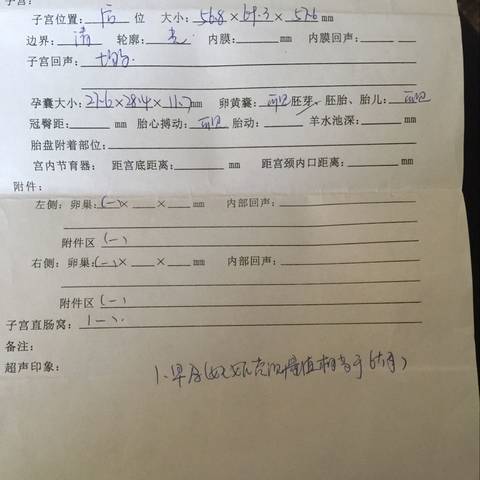 子宫：
子宫位置：后 位 大小：56.8×64.3×57.6 mm
边界：清 轮廓：光 内膜：mm 内膜回声：
子宫回声：均匀
孕囊大小：27.6×28.4×11.7mm 卵黄囊：可见 胚芽、胚胎、胎儿：可见
冠臀距：mm 胎心搏动：可见 胎动：羊水池深：mm
胎盘附着部位：
宫内节育器：距宫底距离：mm 距宫颈内口距离：mm
附件：
左侧：卵巢：(—)×__×__mm 内部回声：
附件区(—)
右侧：卵巢：(—)×__×__mm 内部回声：
附件区(—)
子宫直肠窝：(—).
备注：
超声印象：
1、早孕(如孕囊测量值相当于6周)